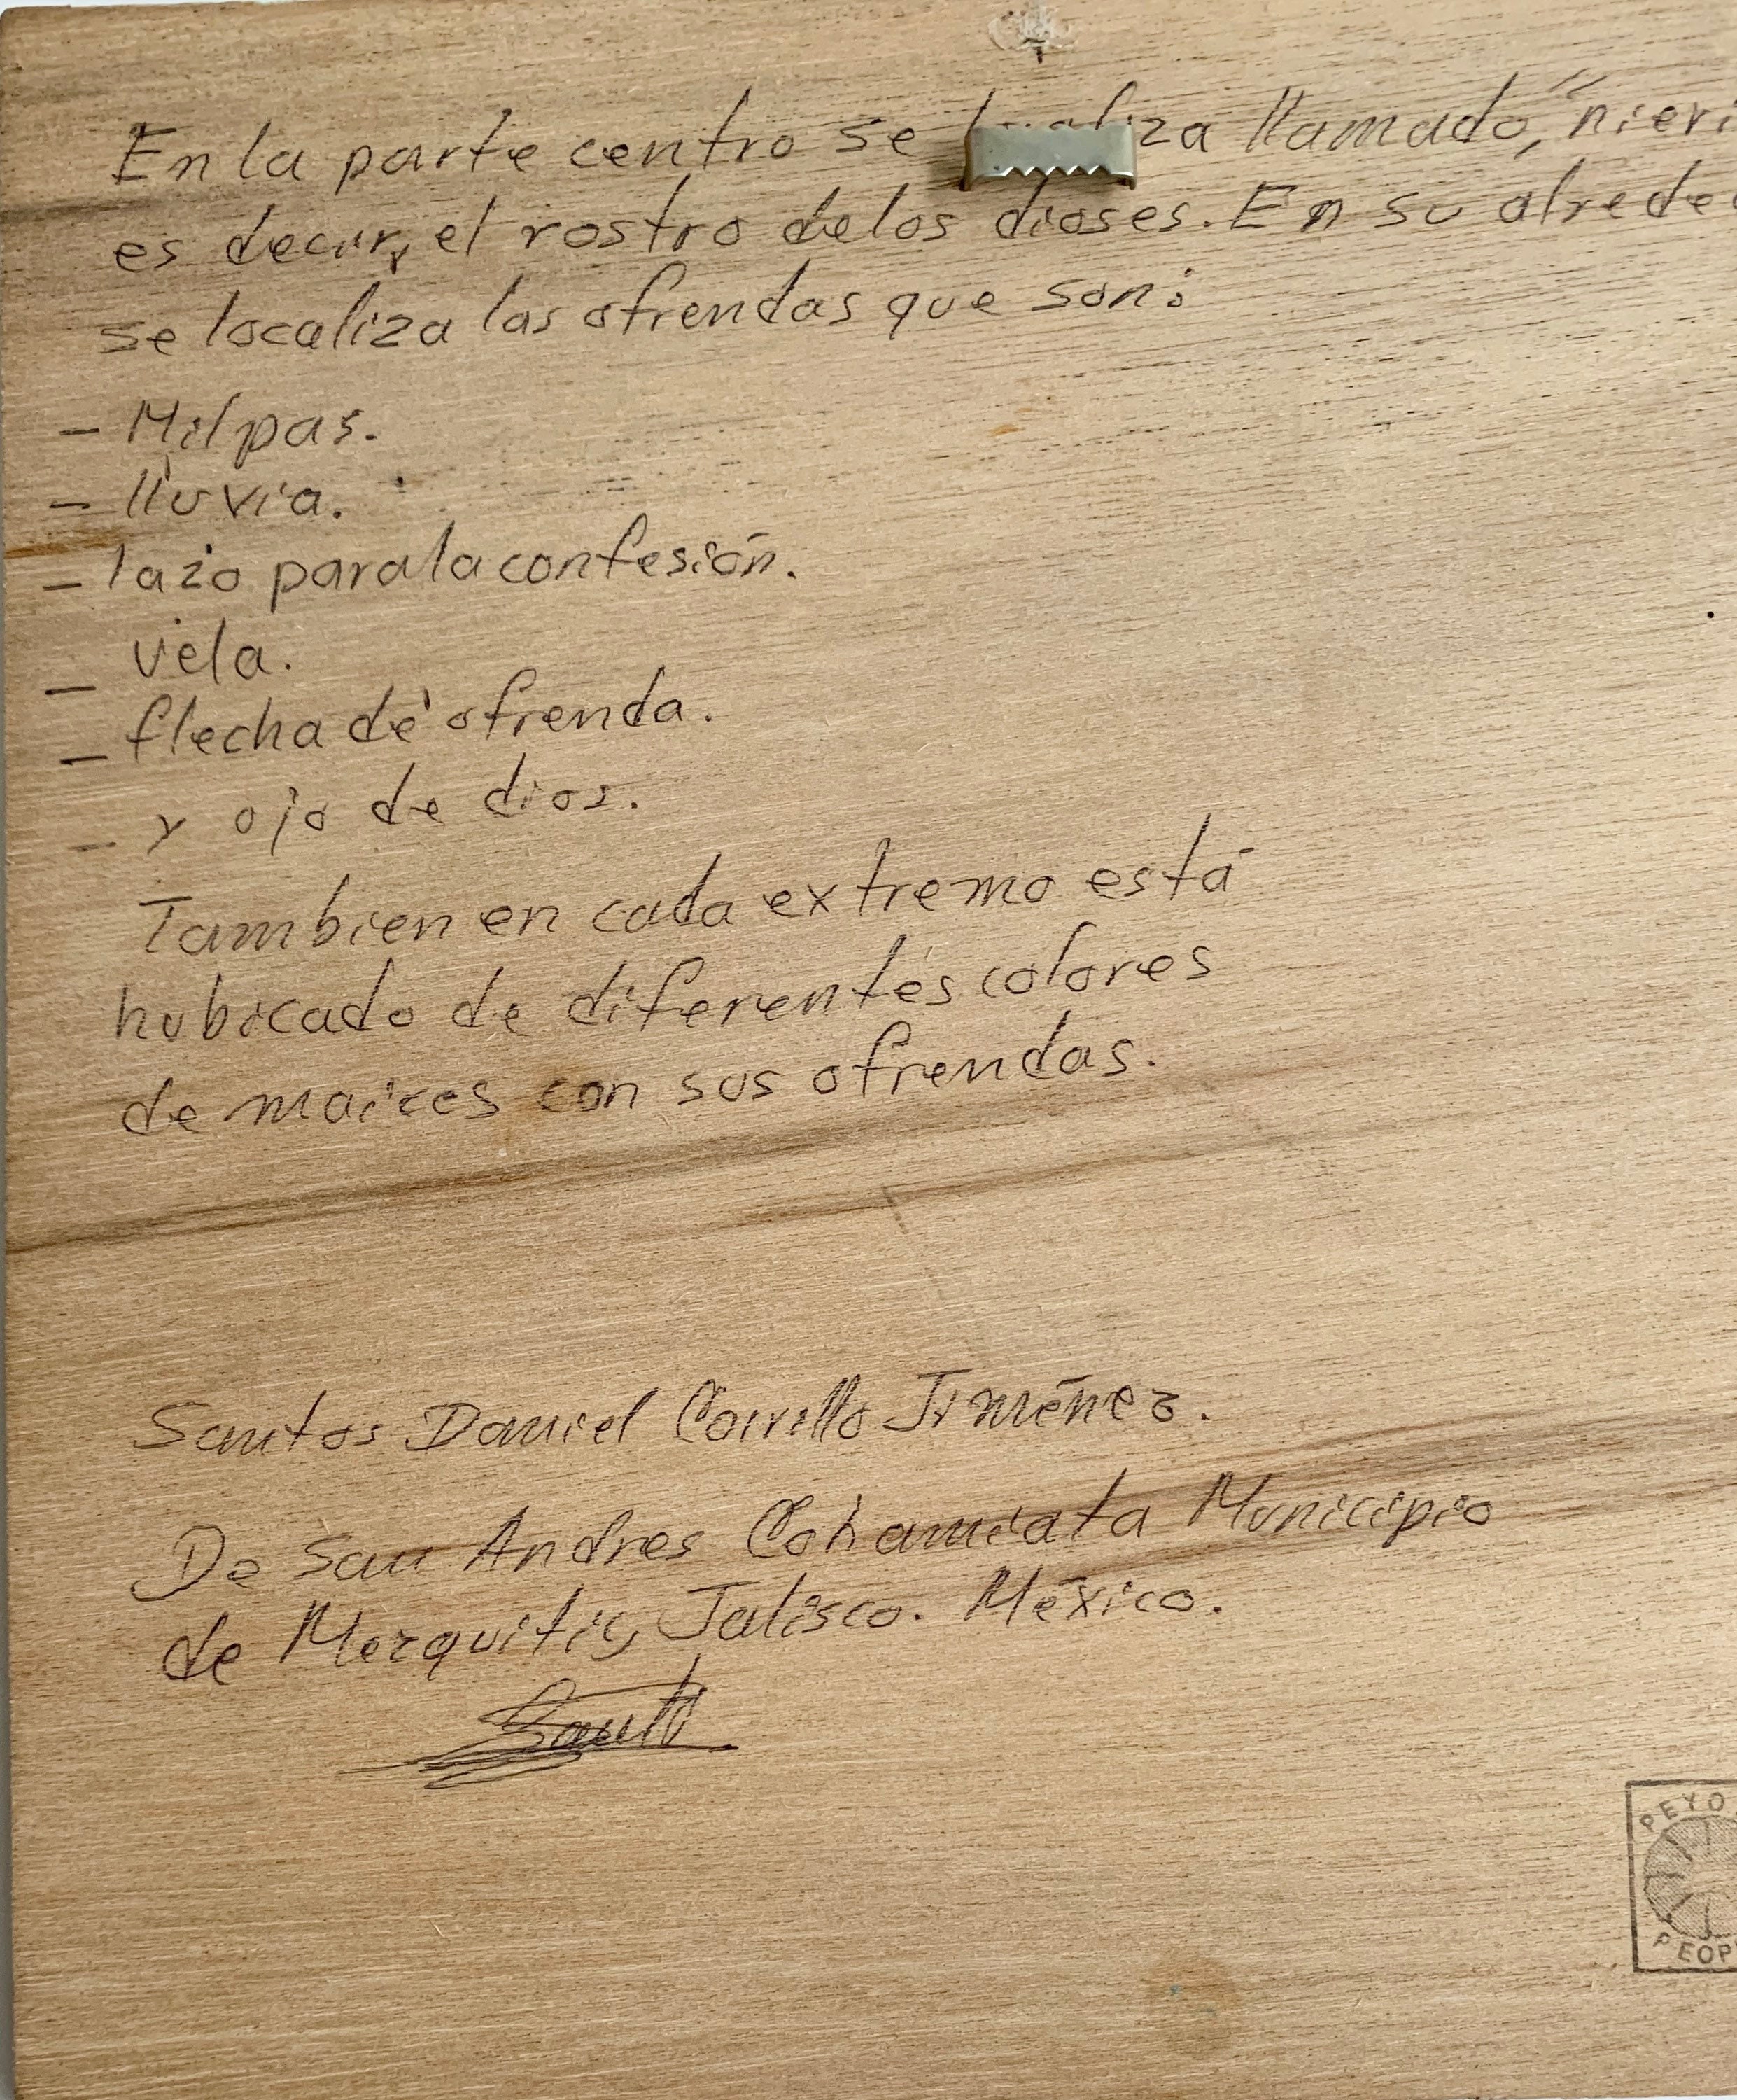 En la parte centro se localiza llamado, "nieri
es decir, el rostro de los dioses. En su alrede
se localiza las ofrendas que son:
- Milpas.
- lluvia.
- lazo para la confesión.
- vela.
- flecha de ofrenda.
- y ojo de dios.
Tambien en cada extremo está
hubicado de diferentes colores
de maices con sus ofrendas.
Santos Daniel Carrillo Jiménez.
De San Andres Cohamiata Municipio
de Mezquitic, Jalisco. México.
PEYO
PEOP